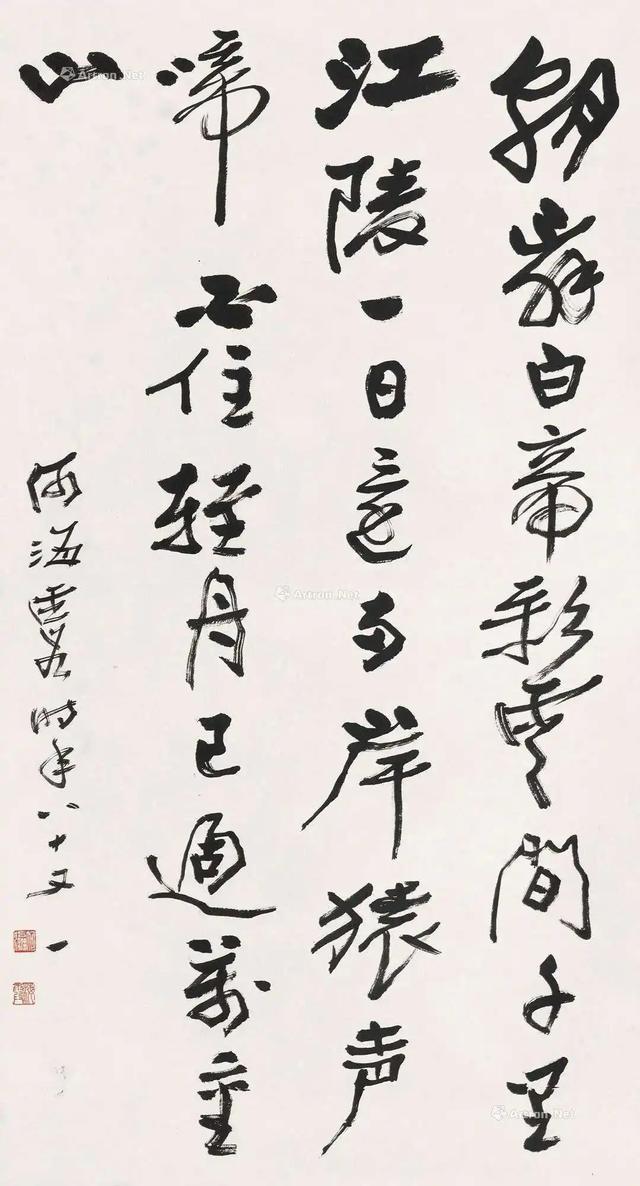 朝辭白帝彩雲間千里
江陵一日還两岸猿声
啼不住輕舟已過萬重
山
何海霞時年八十又一
Artron.Net
Artron.Net
Artron.Net